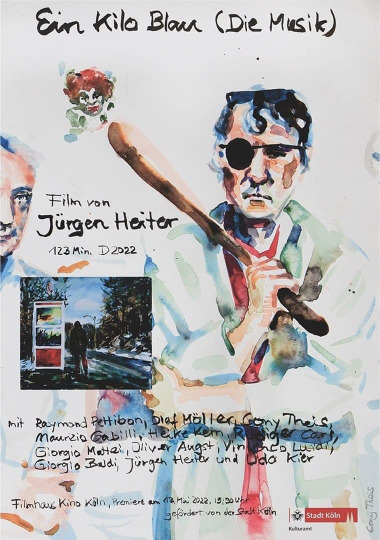 Ein Kilo Blau (Die Musik)
Film von
Jürgen Heiter
123 Min. D 2022
mit Raymond Pettibon, Olaf Möller, Cony Theis,
Maurizio Gabilli, Heike Kern, Rüdiger Carl,
Giorgio Mattei, Oliver Augst, Vincenzo
Giorgio Baldi, Jürgen Heiter und Udo Kier
Filmhaus Kino Köln, Premiere am Mai 2022, 19,30 Uhr
gefördert von der Stadt Köln
Stadt Köln
Kulturamt
Cony Theis